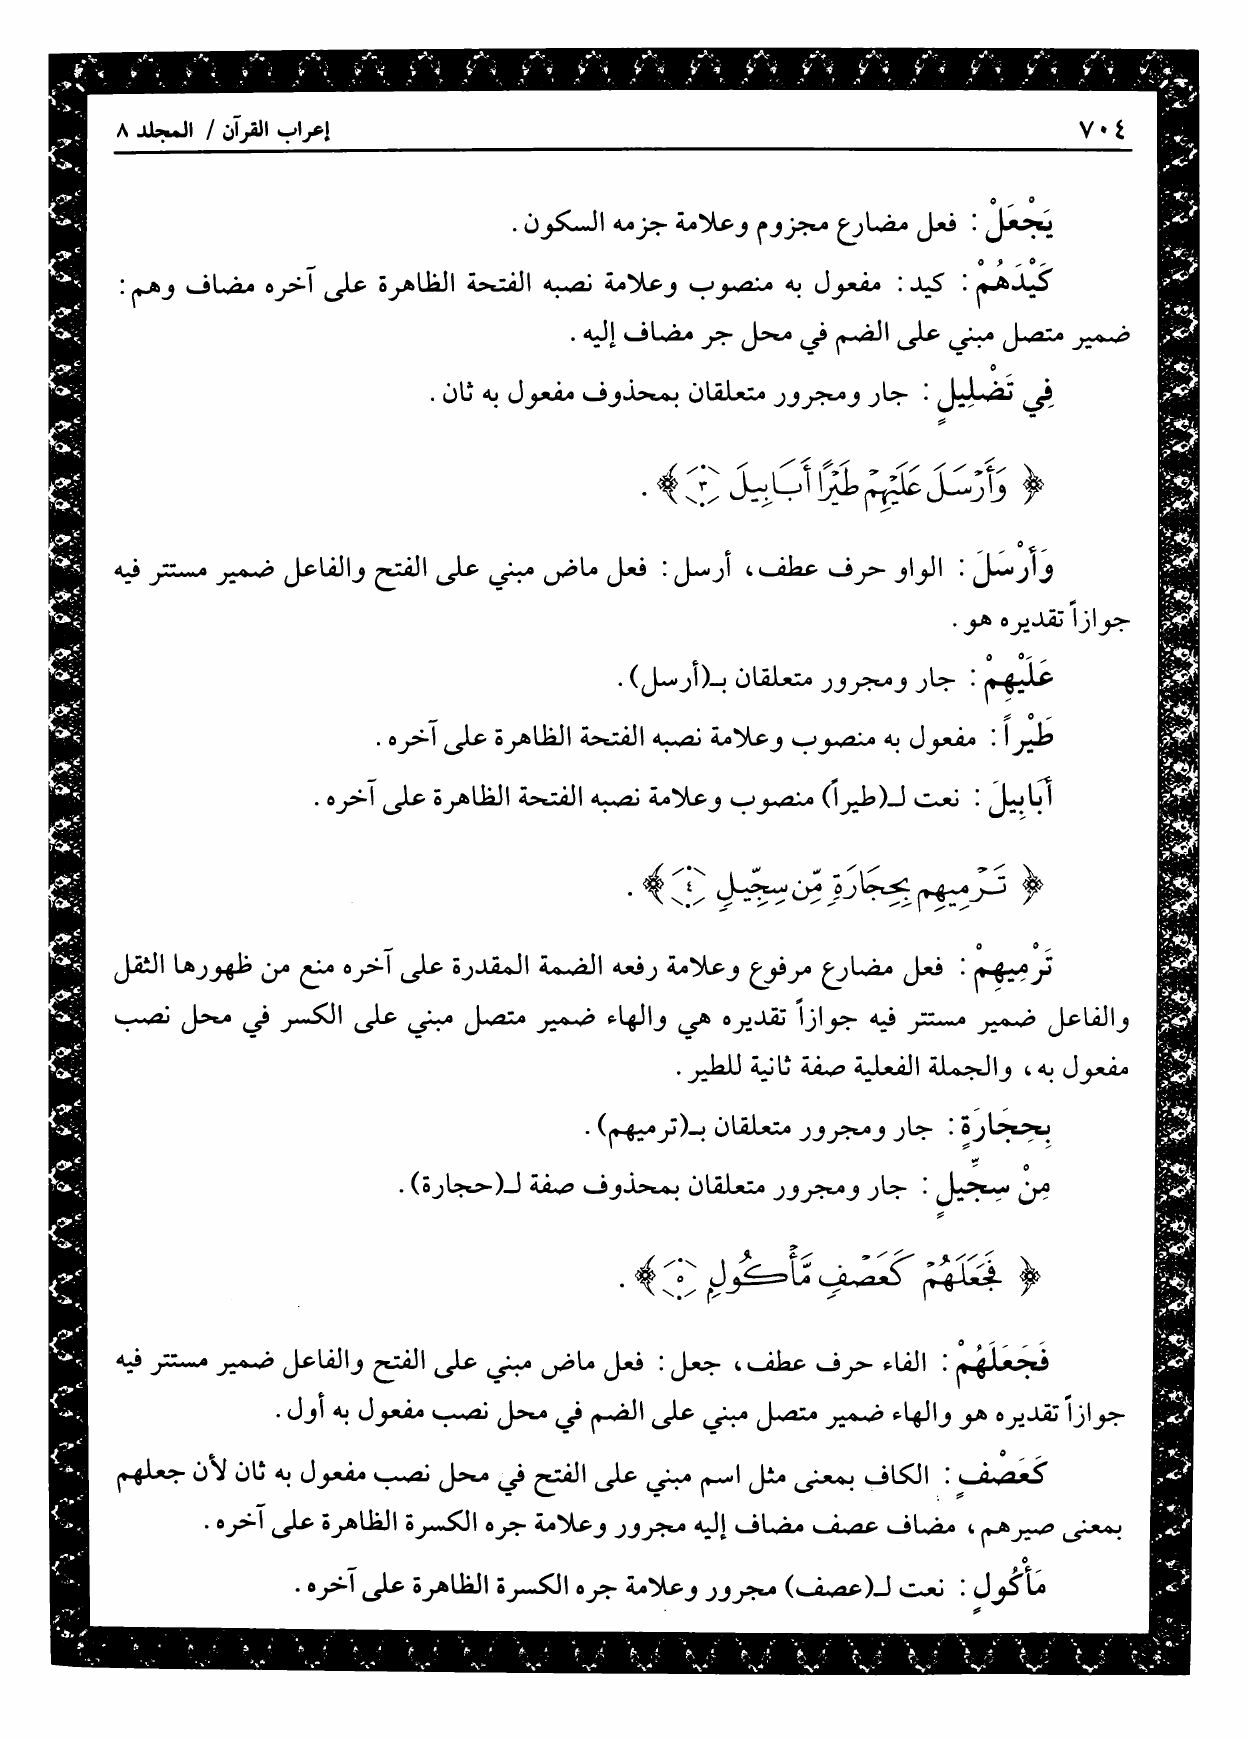 ٧٠٤
إعراب القرآن / المجلد ٨
يَجْعَلْ : فعل مضارع مجزوم وعلامة جزمه السكون .
كَيْدَهُمْ : كيد : مفعول به منصوب وعلامة نصبه الفتحة الظاهرة على آخره مضاف وهم :
ضمير متصل مبني على الضم في محل جر مضاف إليه .
فِي تَضْلِيلٍ : جار ومجرور متعلقان بمحذوف مفعول به ثان .
﴿ وَأَرْسَلَ عَلَيْهِمْ طَيْرًا أَبَابِيلَ ٣ ﴾ .
وَأَرْسَلَ : الواو حرف عطف، أرسل : فعل ماض مبني على الفتح والفاعل ضمير مستتر فيه
جوازاً تقديره هو .
عَلَيْهِمْ : جار ومجرور متعلقان بـ(أرسل) .
طَيْراً : مفعول به منصوب وعلامة نصبه الفتحة الظاهرة على آخره .
أَبَابِيلَ : نعت لـ(طيراً) منصوب وعلامة نصبه الفتحة الظاهرة على آخره .
﴿ تَرْمِيهِم بِحِجَارَةٍ مِّن سِجِّيلٍ ٤ ﴾ .
تَرْمِيهِمْ : فعل مضارع مرفوع وعلامة رفعه الضمة المقدرة على آخره منع من ظهورها الثقل
والفاعل ضمير مستتر فيه جوازاً تقديره هي والهاء ضمير متصل مبني على الكسر في محل نصب
مفعول به، والجملة الفعلية صفة ثانية للطير .
بِحِجَارَةٍ : جار ومجرور متعلقان بـ(ترميهم) .
مِنْ سِجِّيلٍ : جار ومجرور متعلقان بمحذوف صفة لـ(حجارة) .
﴿ فَجَعَلَهُمْ كَعَصْفٍ مَّأْكُولٍ ٥ ﴾ .
فَجَعَلَهُمْ : الفاء حرف عطف، جعل : فعل ماض مبني على الفتح والفاعل ضمير مستتر فيه
جوازاً تقديره هو والهاء ضمير متصل مبني على الضم في محل نصب مفعول به أول .
كَعَصْفٍ : الكاف بمعنى مثل اسم مبني على الفتح في محل نصب مفعول به ثان لأن جعلهم
بمعنى صيرهم، مضاف عصف مضاف إليه مجرور وعلامة جره الكسرة الظاهرة على آخره .
مَأْكُولٍ : نعت لـ(عصف) مجرور وعلامة جره الكسرة الظاهرة على آخره .